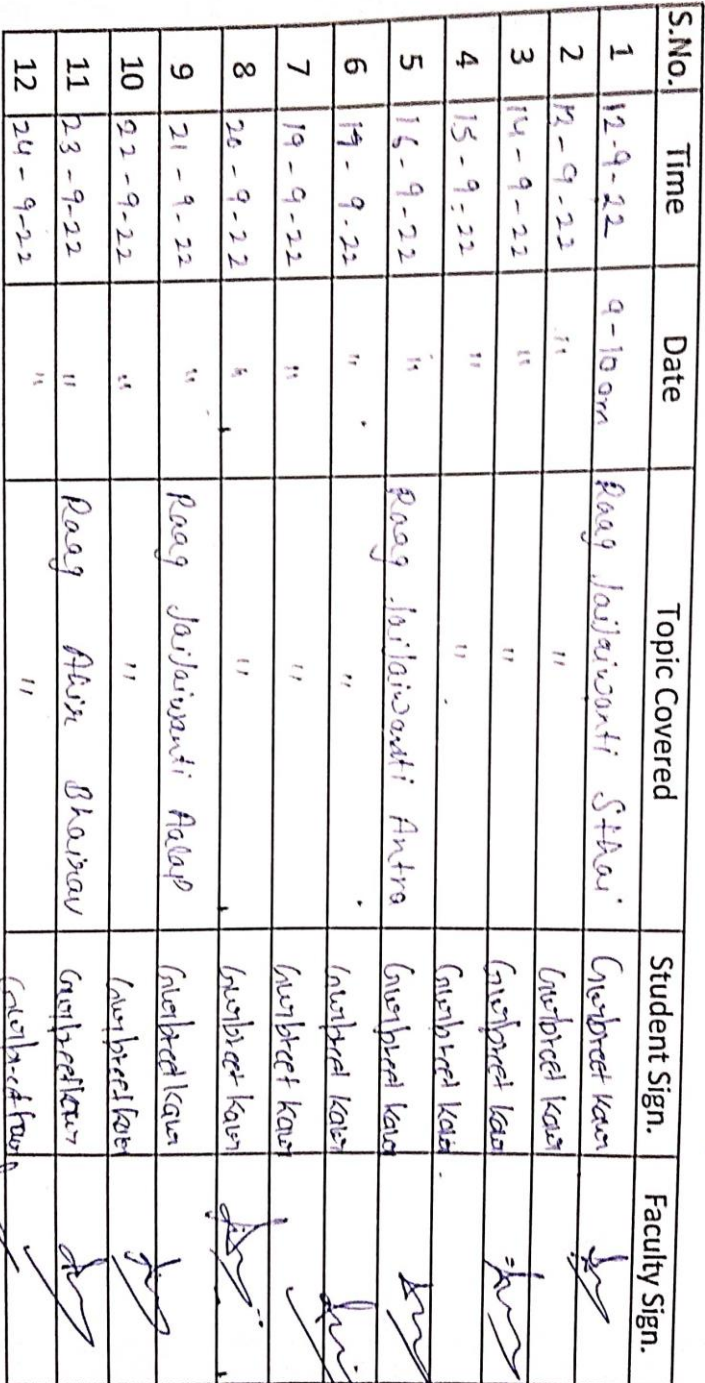 S.No. Time Date Topic Covered Student Sign. Faculty Sign.
1 12-9-22 9-10 am Raag Jaijaiwanti Sthai Gurbreet Kaur
2 12-9-22 " " Gurbreet Kaur
3 14-9-22 " " Gurbreet Kaur
4 15-9-22 " " Gurbreet Kaur
5 16-9-22 " Raag Jaijaiwanti Antra Gurbreet Kaur
6 17-9-22 " " Gurbreet Kaur
7 19-9-22 " " Gurbreet Kaur
8 20-9-22 " " Gurbreet Kaur
9 21-9-22 " Raag Jaijaiwanti Aalap Gurbreet Kaur
10 22-9-22 " " Gurbreet Kaur
11 23-9-22 " Raag Ahir Bhairav Gurbreet Kaur
12 24-9-22 " " Gurbreet Kaur